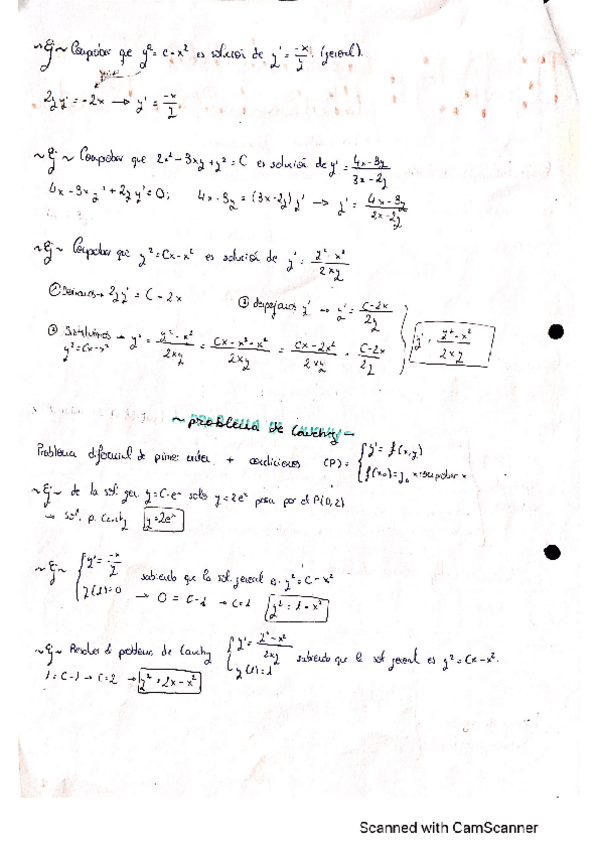 ~Ej~ Comprobar que y² = c - x² es solución de y' = -x/y (general).
2yy' = -2x → y' = -x/y
~Ej~ Comprobar que 2x² - 3xy + y² = C es solución de y' = 4x-3y/3x-2y
4x - 3xy' + 2yy' = 0; 4x - 3y = (3x-2y)y' → y' = 4x-3y/2x-2y
~Ej~ Comprobar que y² = Cx - x² es solución de y' = y²-x²/2xy
① Derivamos → 2yy' = C - 2x ② despejamos y' → y' = C-2x/2y
③ Sustituimos → y' = y²-x²/2xy = Cx-x²-x²/2xy = Cx-2x²/2xy = C-2x/2y y' = y²-x²/2xy
y² = Cx-x²
~ problema de Cauchy ~
Problema diferencial de primer orden + condiciones (P) = { y' = f(x,y)
f(x₀) = y₀
~Ej~ de la sol. gen. y = C·eˣ solo y = 2eˣ pasa por el P(0,2)
→ sol. p. Cauchy y = 2eˣ
~Ej~ { y' = -x/y
y(1) = 0 sabiendo que la sol. general es y² = C - x²
→ 0 = C-1 → C=1 y² = 1 - x²
~Ej~ Resolver el problema de Cauchy { y' = y²-x²/2xy
y(1) = 1 sabiendo que la sol general es y² = Cx - x².
1 = C-1 → C=2 → y² = 2x - x²
Scanned with CamScanner